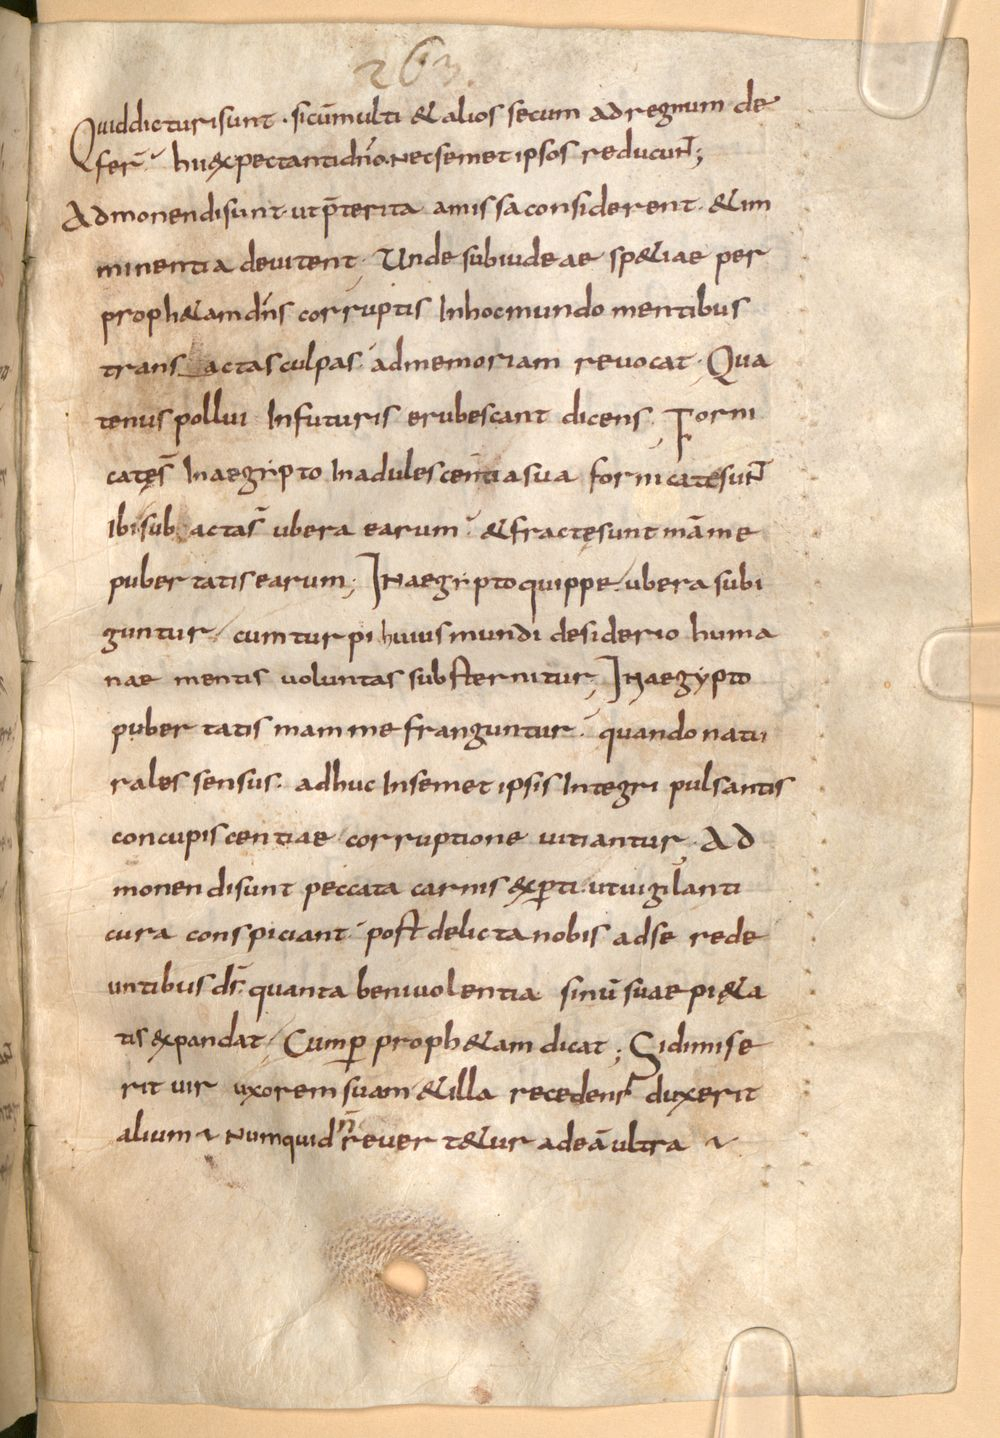 263
Quiddicturisunt · sicūmulti & alios secum adregnum de
fer̄ · hiiexpectantidn̄o necsemetipsos reducunt̄;
Admonendisunt · utp̄terita amissaconsiderent · &im
minentia devitent; Unde subiudeae sp&iae per
proph&amdn̄s corruptis Inhocmundo mentibus
trans actasculpas admemoriam revocat · Qua
tenuspollui Infuturis erubescant dicens; Forni
catęs̄ Inaegipto Inadulescentiasua fornicatesunt̄
Ibisub actas̄ ubera earum & fractęsuntmāme
pubertatisearum; INaegiptoquippe uberasubi
guntur / cumturpi huiusmundi desiderio huma
nae mentis voluntas substernitur; INaegypto
pubertatis mammefranguntur · quandonatu
rales sensus · adhuc Insemetipsis Integri pulsantis
concupiscentiae corruptione vitiantur; Ad
monendisunt peccata carnis exꝑti · utvigilanti
cura conspiciant · post delictanobis adse rede
untibus dś · quanta benivolentia sinū suae pi&a
tis expandat / Cumꝑ proph&am dicat; Sidimise
rit vir uxoremsuam &illa recedens duxerit
alium numquid n̄ rever t&ur adeāultra